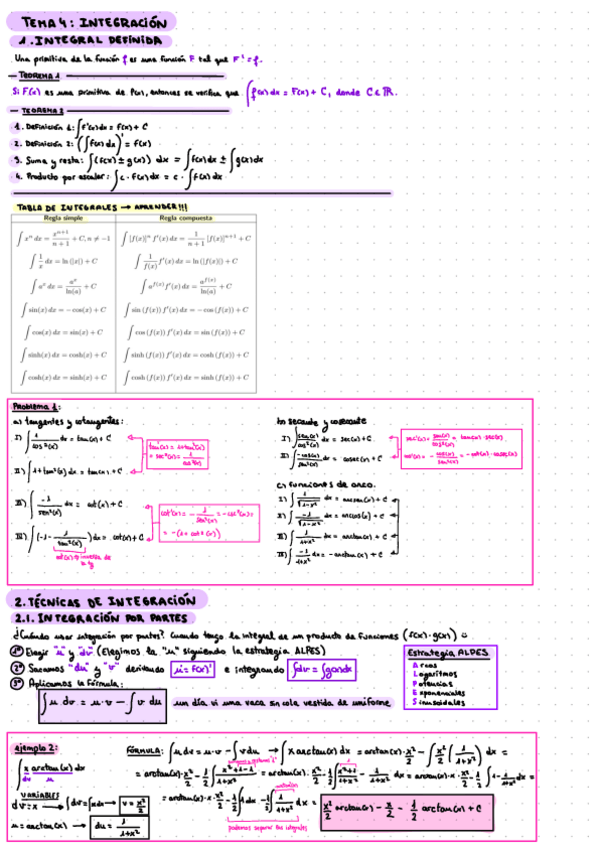 TEMA 4: INTEGRACIÓN
1. INTEGRAL DEFINIDA
Una primitiva de la función f es una función F tal que F' = f.
TEOREMA 1
Si F(x) es una primitiva de f(x), entonces se verifica que ∫ f(x) dx = F(x) + C, donde C ∈ ℝ.
TEOREMA 2
1. Definición 1: ∫ f'(x) dx = f(x) + C
2. Definición 2: (∫ f(x) dx)' = f(x)
3. Suma y resta: ∫ (f(x) ± g(x)) dx = ∫ f(x) dx ± ∫ g(x) dx
4. Producto por escalar: ∫ c · f(x) dx = c · ∫ f(x) dx
TABLA DE INTEGRALES → APRENDER!!!
Regla simple Regla compuesta
∫ xⁿ dx = xⁿ⁺¹/(n+1) + C, n ≠ −1 ∫ [f(x)]ⁿ f'(x) dx = 1/(n+1) [f(x)]ⁿ⁺¹ + C
∫ 1/x dx = ln(|x|) + C ∫ 1/f(x) f'(x) dx = ln(|f(x)|) + C
∫ aˣ dx = aˣ/ln(a) + C ∫ a^f(x) f'(x) dx = a^f(x)/ln(a) + C
∫ sin(x) dx = −cos(x) + C ∫ sin(f(x)) f'(x) dx = −cos(f(x)) + C
∫ cos(x) dx = sin(x) + C ∫ cos(f(x)) f'(x) dx = sin(f(x)) + C
∫ sinh(x) dx = cosh(x) + C ∫ sinh(f(x)) f'(x) dx = cosh(f(x)) + C
∫ cosh(x) dx = sinh(x) + C ∫ cosh(f(x)) f'(x) dx = sinh(f(x)) + C
Problema 1:
a) tangentes y cotangentes:
I) ∫ 1/cos²(x) dx = tan(x) + C
tan'(x) = 1+tan²(x) = sec²(x) = 1/cos²(x)
II) ∫ 1+tan²(x) dx = tan(x) + C
III) ∫ -1/sen²(x) dx = cot(x) + C
cot'(x) = -1/sen²(x) = -csc²(x) = -(1+cot²(x))
b) secante y cosecante
I) ∫ sen(x)/cos²(x) dx = sec(x) + C
II) ∫ -cos(x)/sen²(x) dx = cosec(x) + C
sec'(x) = sen(x)/cos²(x) = tan(x)·sec(x)
c) funciones de arco.
I) ∫ 1/√(1-x²) dx = arcsen(x) + C
II) ∫ -1/√(1-x²) dx = arccos(x) + C
III) ∫ 1/(1+x²) dx = arctan(x) + C
2. TÉCNICAS DE INTEGRACIÓN
2.1. INTEGRACIÓN POR PARTES
¿Cuándo usar integración por partes? Cuando tengo la integral de un producto de funciones (f(x)·g(x))
1º Elegir "u" y "dv" (Elegimos la "u" siguiendo la estrategia ALPES)
2º Sacamos "du" y "v" derivando u = f(x)' e integrando ∫dv = ∫g(x)dx
3º Aplicamos la fórmula:
∫ u dv = u·v − ∫ v du un día vi una vaca sin cola vestida de uniforme
Estrategia ALPES
Arcos
Logaritmos
Potencias
Exponenciales
Sinusoidales
ejemplo 2:
∫ x arctan(x) dx
VARIABLES
dv = x → ∫dv = ∫x dx → v = x²/2
u = arctan(x) → du = 1/(1+x²)
FÓRMULA: ∫ u dv = u·v − ∫ v du → ∫ x arctan(x) dx = arctan(x)·x²/2 − ∫ x²/2 (1/(1+x²)) dx =
podemos separar las integrales
x²/2 arctan(x) − x/2 − 1/2 arctan(x) + C